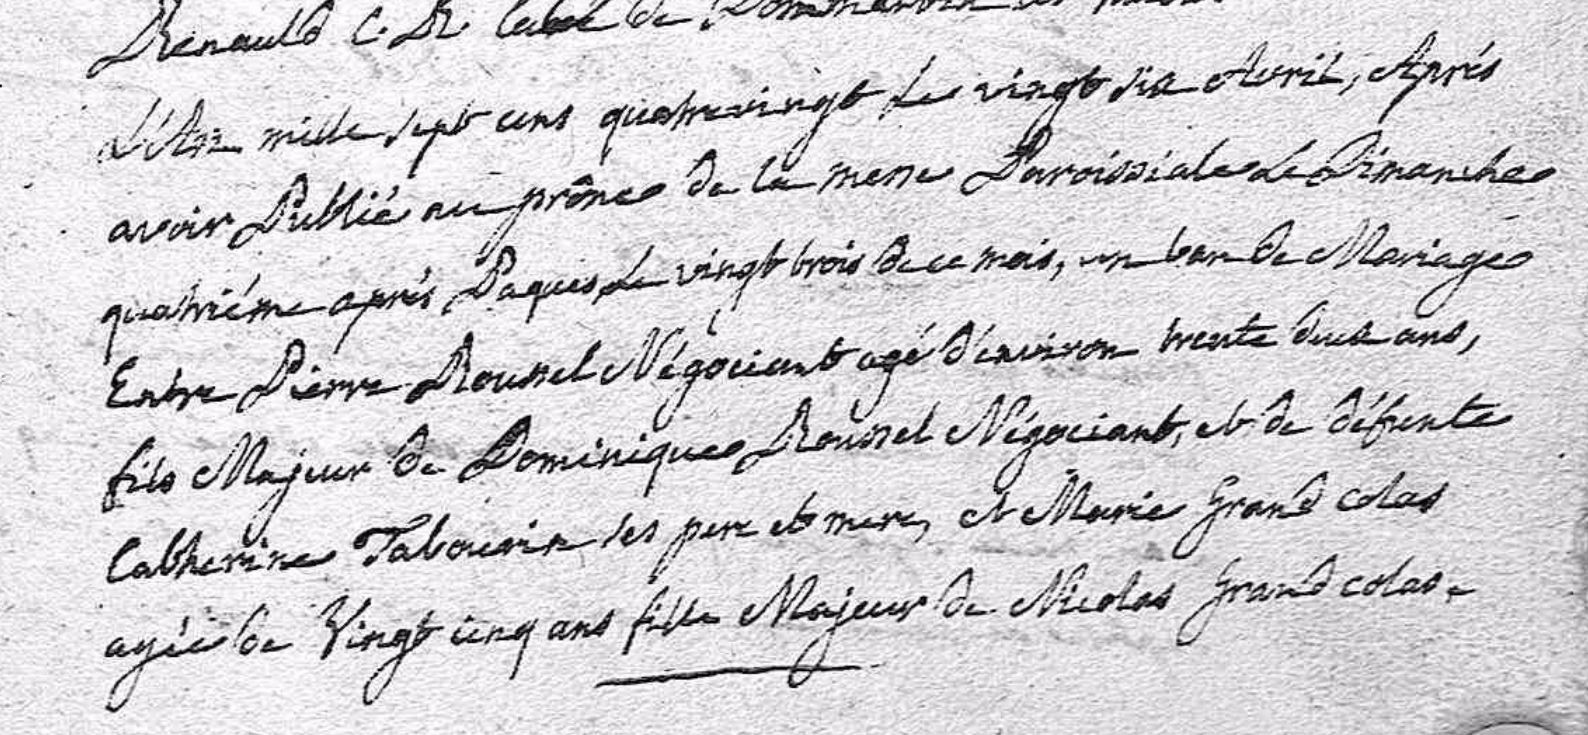 Renauld C. R. Curé de Dommartin
L'An mille sept cens quatrevingt Le vingt six Avril, Aprés
avoir Publié au prône de la messe Paroissiale Le Dimanche
quatriéme aprés Paques, Le vingt trois de ce mois, un ban de Mariage
Entre Pierre Roussel Négociant agé d'environ trente deux ans,
fils Majeur de Dominique Roussel Négociant, et de défunte
Catherine Tabourin ses pere et mere, et Marie Grand colas
agée de Vingt cinq ans fille Majeur de Nicolas Grand colas.